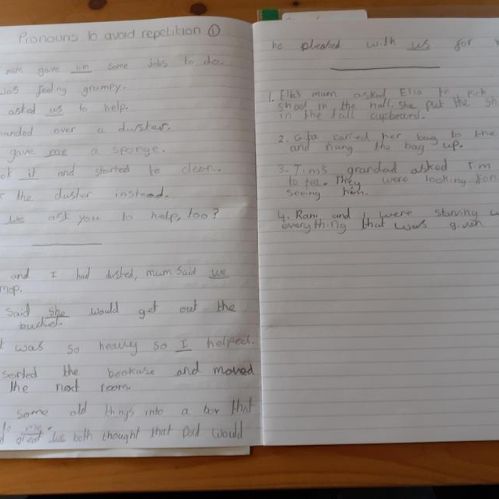 Pronouns to avoid repetition ①
mum gave us some jobs to do.
was feeling grumpy.
asked us to help.
handed over a duster.
gave me a sponge.
it and started to clean.
the duster instead.
we ask you to help, too?
and I had dusted, mum said we
mop.
said she would get out the
bucket.
was so heavy so I helped.
sorted the bookcase and moved
the next room.
some old things into a box that
we both thought that Dad would
he pleaded with us for
1. Ella's mum asked Ella to pick
in the hall. She put the
in the tall cupboard.
2. carried her bag to the
and hang the bag up.
3. Tim's grandad asked Tim
to tea. They were looking for
seeing him.
4. Rani and I were starving
everything that was given